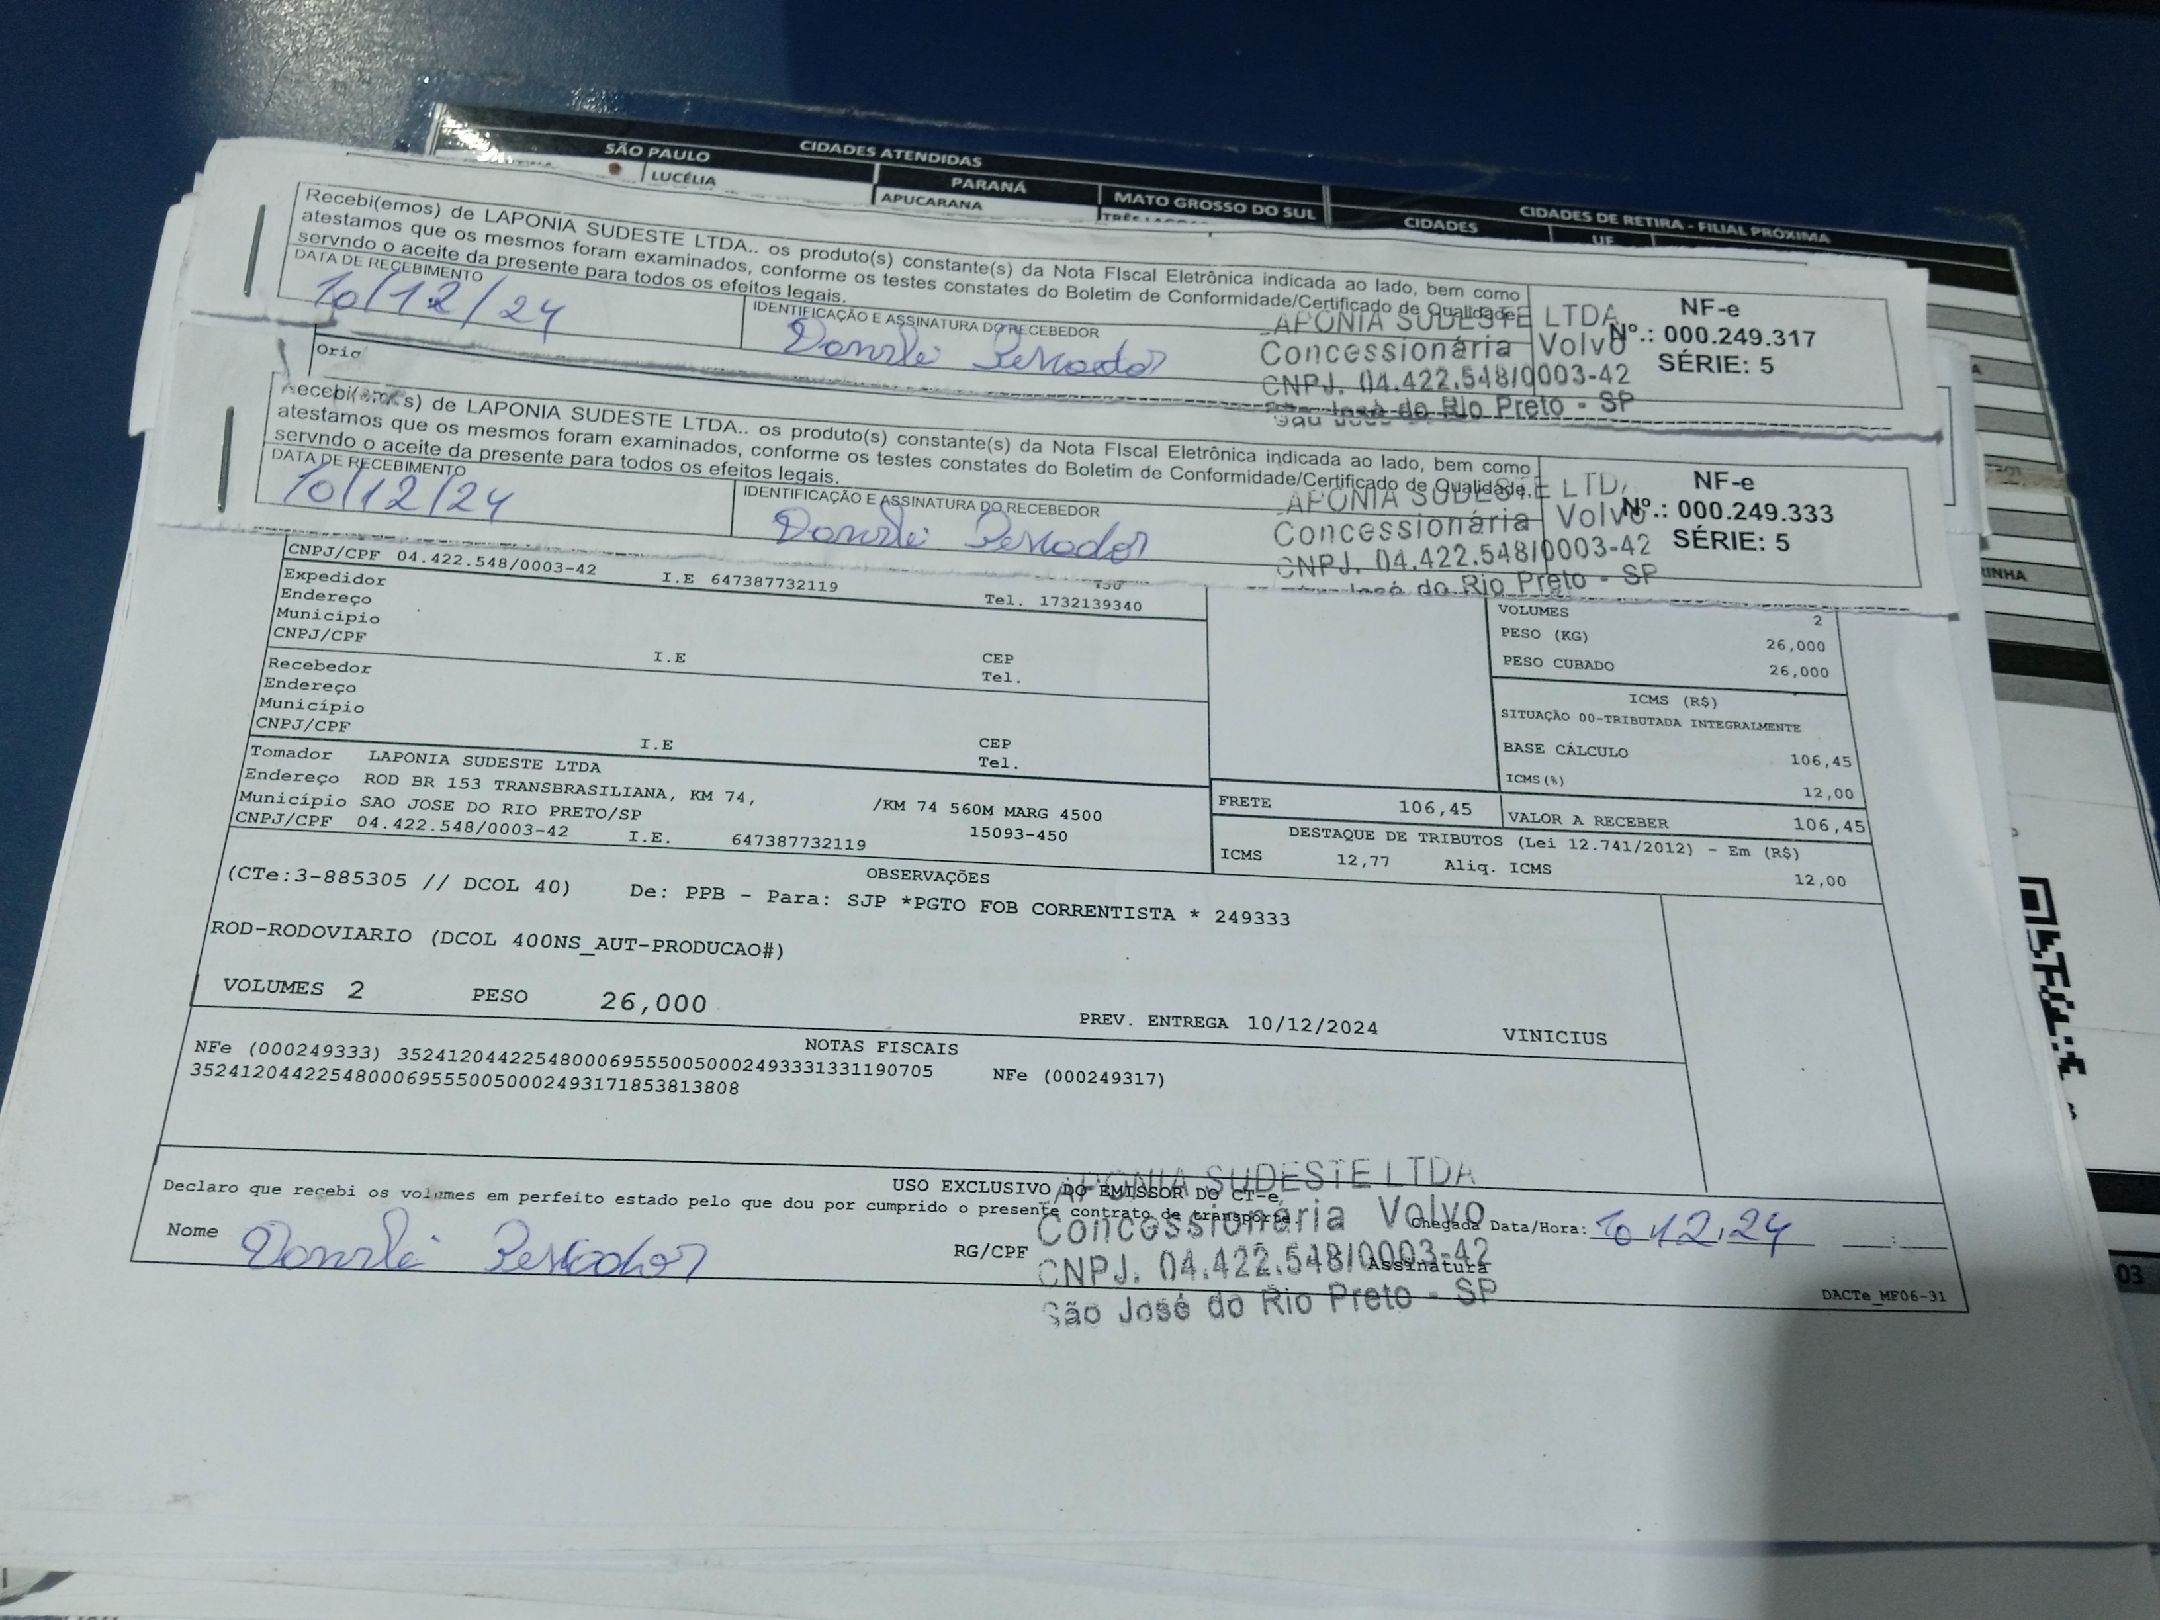 CIDADES ATENDIDAS
SÃO PAULO
PARANÁ
MATO GROSSO DO SUL
CIDADES DE RETIRA - FILIAL PRÓXIMA
LUCÉLIA
APUCARANA
CIDADES
UF
Recebi(emos) de LAPONIA SUDESTE LTDA.. os produto(s) constante(s) da Nota FIscal Eletrônica indicada ao lado, bem como
atestamos que os mesmos foram examinados, conforme os testes constates do Boletim de Conformidade/Certificado de Qualidade,
servndo o aceite da presente para todos os efeitos legais.
DATA DE RECEBIMENTO
10/12/24
IDENTIFICAÇÃO E ASSINATURA DO RECEBEDOR
APONIA SUDESTE LTDA
Concessionária Volvo
CNPJ. 04.422.548/0003-42
São José do Rio Preto - SP
NF-e
Nº.: 000.249.317
SÉRIE: 5
Orig
Recebi(emos) de LAPONIA SUDESTE LTDA.. os produto(s) constante(s) da Nota FIscal Eletrônica indicada ao lado, bem como
atestamos que os mesmos foram examinados, conforme os testes constates do Boletim de Conformidade/Certificado de Qualidade,
servndo o aceite da presente para todos os efeitos legais.
DATA DE RECEBIMENTO
10/12/24
IDENTIFICAÇÃO E ASSINATURA DO RECEBEDOR
APONIA SUDESTE LTD
Concessionária Volvo
CNPJ. 04.422.548/0003-42
José do Rio Preto - SP
NF-e
Nº.: 000.249.333
SÉRIE: 5
RINHA
CNPJ/CPF 04.422.548/0003-42 I.E 647387732119 Tel. 1732139340
Expedidor
Endereço
Município
CNPJ/CPF I.E CEP
Tel.
Recebedor
Endereço
Município
CNPJ/CPF I.E CEP
Tel.
VOLUMES 2
PESO (KG) 26,000
PESO CUBADO 26,000
ICMS (R$)
SITUAÇÃO 00-TRIBUTADA INTEGRALMENTE
BASE CÁLCULO 106,45
ICMS(%) 12,00
Tomador LAPONIA SUDESTE LTDA
Endereço ROD BR 153 TRANSBRASILIANA, KM 74, /KM 74 560M MARG 4500
Município SAO JOSE DO RIO PRETO/SP 15093-450
CNPJ/CPF 04.422.548/0003-42 I.E. 647387732119
FRETE 106,45 VALOR A RECEBER 106,45
DESTAQUE DE TRIBUTOS (Lei 12.741/2012) - Em (R$)
ICMS 12,77 Aliq. ICMS 12,00
OBSERVAÇÕES
(CTe:3-885305 // DCOL 40) De: PPB - Para: SJP *PGTO FOB CORRENTISTA * 249333
ROD-RODOVIARIO (DCOL 400NS_AUT-PRODUCAO#)
VOLUMES 2 PESO 26,000
PREV. ENTREGA 10/12/2024 VINICIUS
NOTAS FISCAIS
NFe (000249333) 35241204422548000695550050002493331331190705 NFe (000249317)
35241204422548000695550050002493171853813808
USO EXCLUSIVO DO EMISSOR DO CT-e,
Declaro que recebi os volumes em perfeito estado pelo que dou por cumprido o presente contrato de transporte.
Nome
RG/CPF
Chegada Data/Hora: 10.12.24
Assinatura
APONIA SUDESTE LTDA
Concessionária Volvo
CNPJ. 04.422.548/0003-42
São José do Rio Preto - SP
DACTe_MF06-31
03